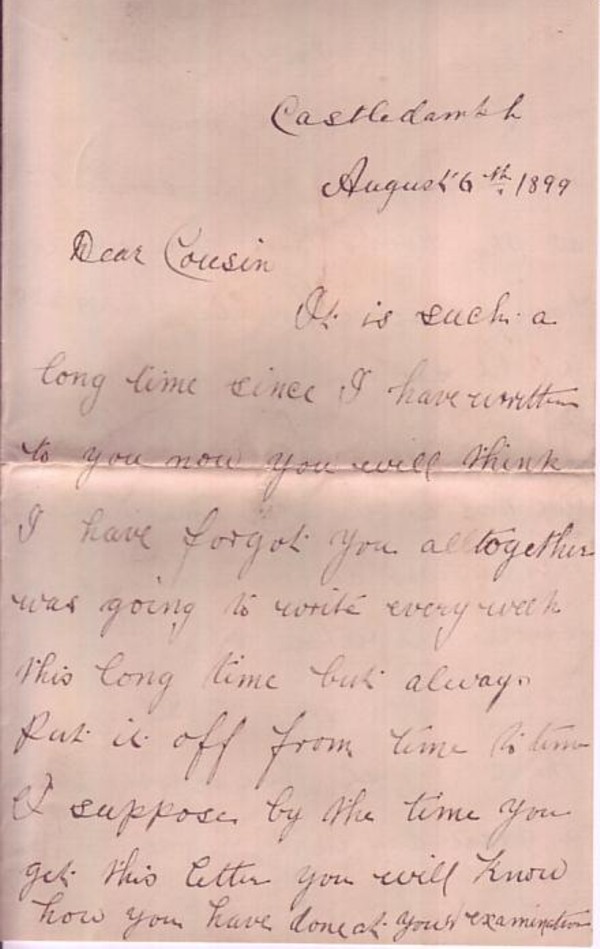 Castledamph
August 6th 1899
Dear Cousin
It is such a
long time since I have written
to you now you will think
I have forgot you alltogether
was going to write every week
this long time but always
Put it off from time to time
I suppose by the time you
get this letter you will know
how you have done at your examination